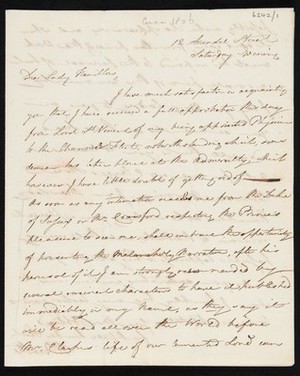 6242/1
12 Arundel Street
Saturday Evening
Dear Lady Hamilton,
I have much satisfaction in acquainting
you that I have received a full approbation this day
from Lord St Vincent of my being appointed Physician
to the Channel Fleet, notwithstanding which, some
demur has taken place at the Admiralty, which
however I have little doubt of getting rid of
As soon as any intimation reaches me from the Duke
of Sussex or Mr. Crawford respecting the Princes
pleasure to see me, shall embrace the opportunity
of presenting the Melancholy Narrative, after his
perusal of it I am strongly recommended by
several musical characters to have it published
immediately, in my Name, as they say it
will be read all over the World before
Mr. Clarkes life of our lamented Lord can